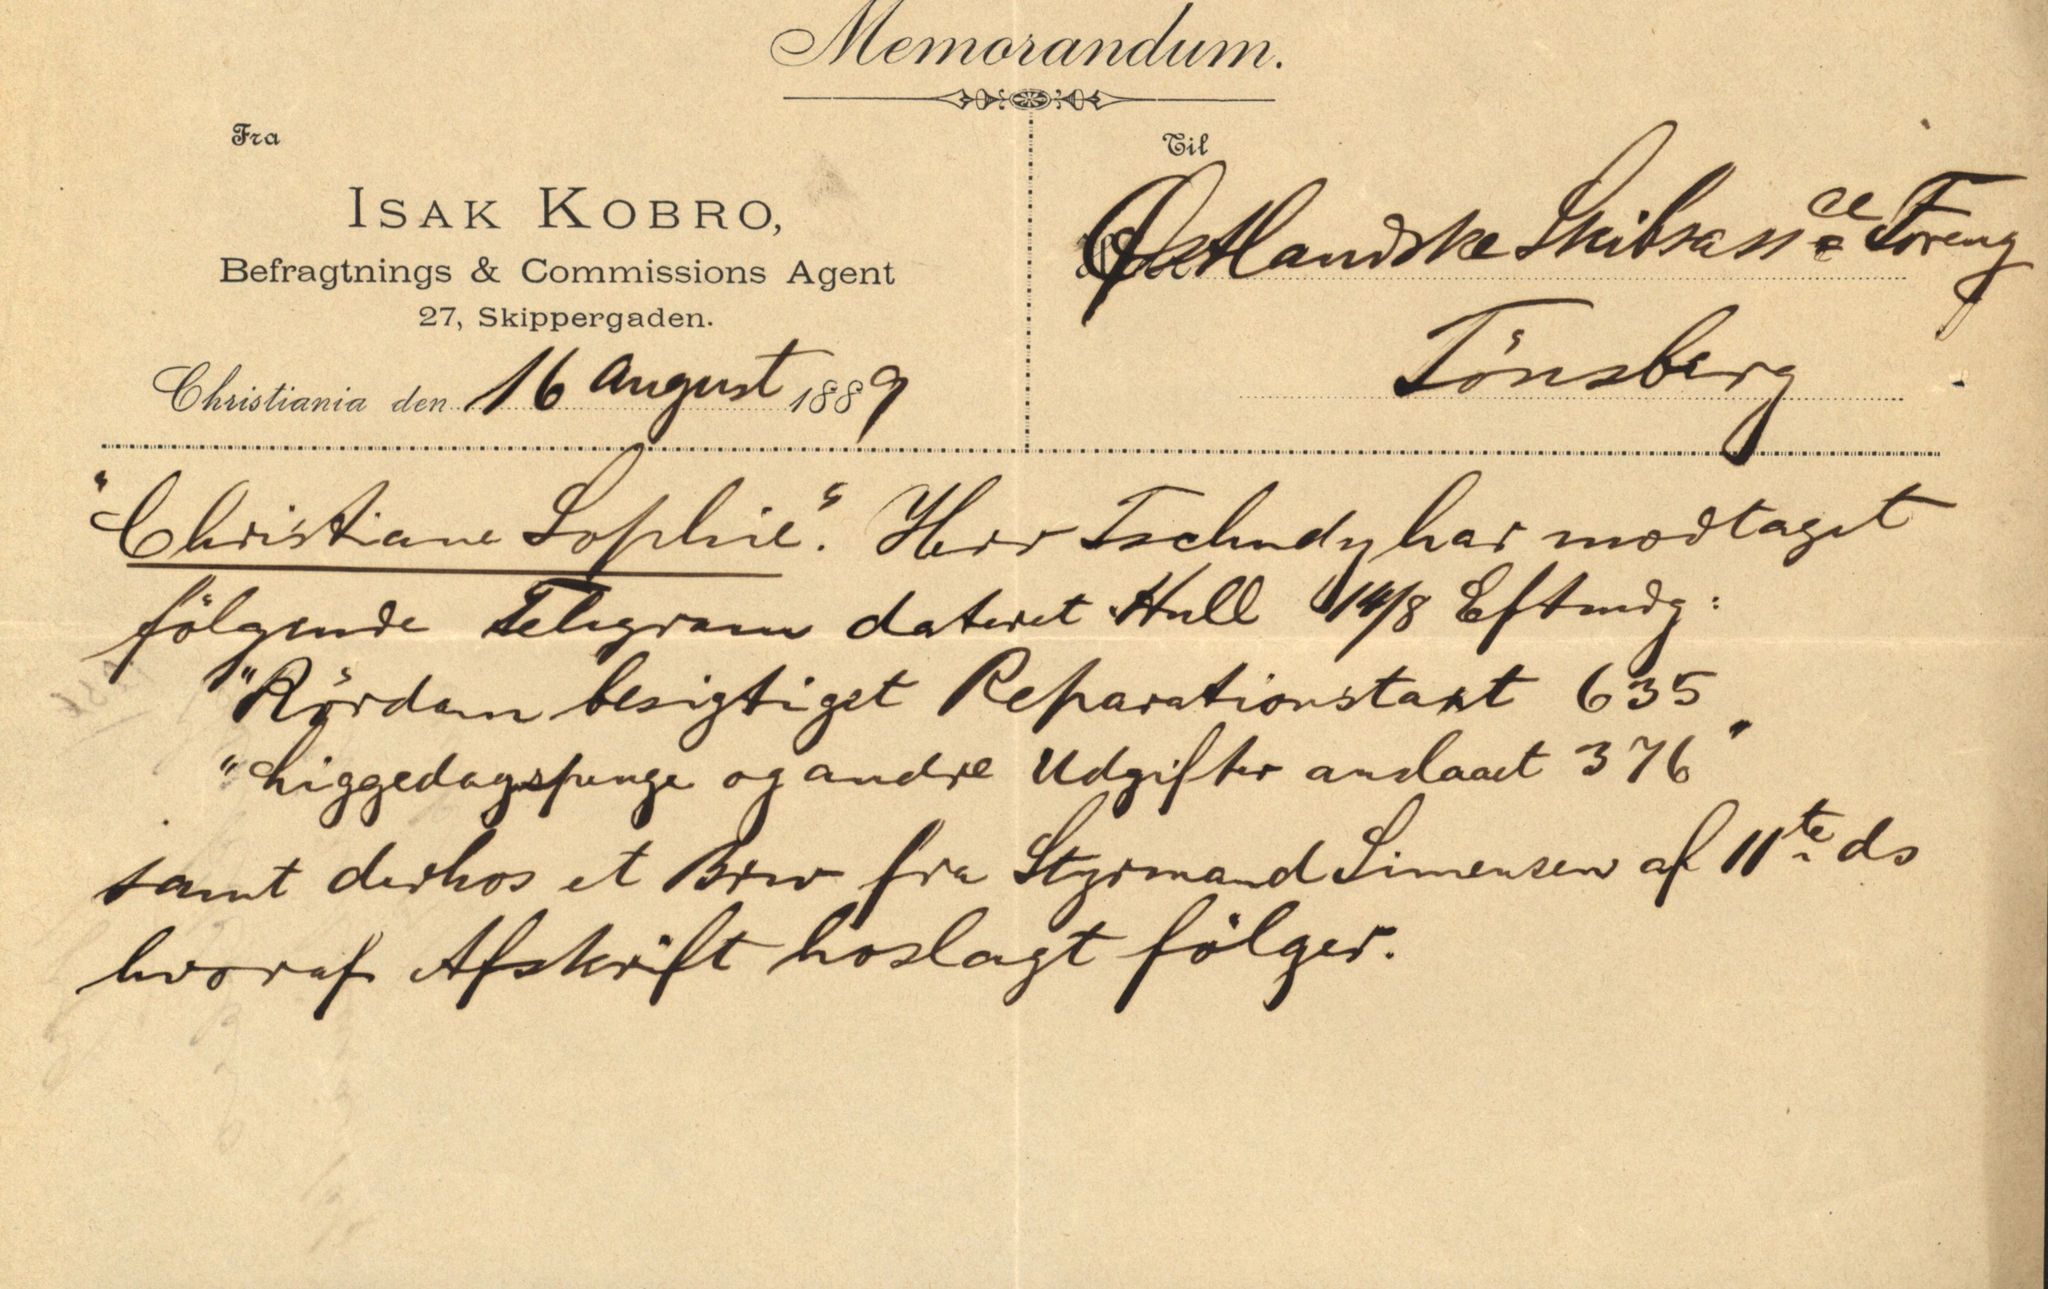 Memorandum.
Fra
Til
ISAK KOBRO,
Befragtnings & Commissions Agent
27, Skippergaden.
Christiania den 16 august 1889
Østlandske Skibsassce Foreng
Tönsberg
"Christiane Sophie". Herr Tschudy har modtaget
fölgende Telegram dateret Hull 14/8 Eftmdg:
"Rördam besigtiget Reparationstaxt 635
"Liggedagspenge og andre Udgifter anslaaet 376"
samt derhos et Brev fra Styrmand Simensen af 11te ds
hvoraf Afskrift hoslagt fölger.